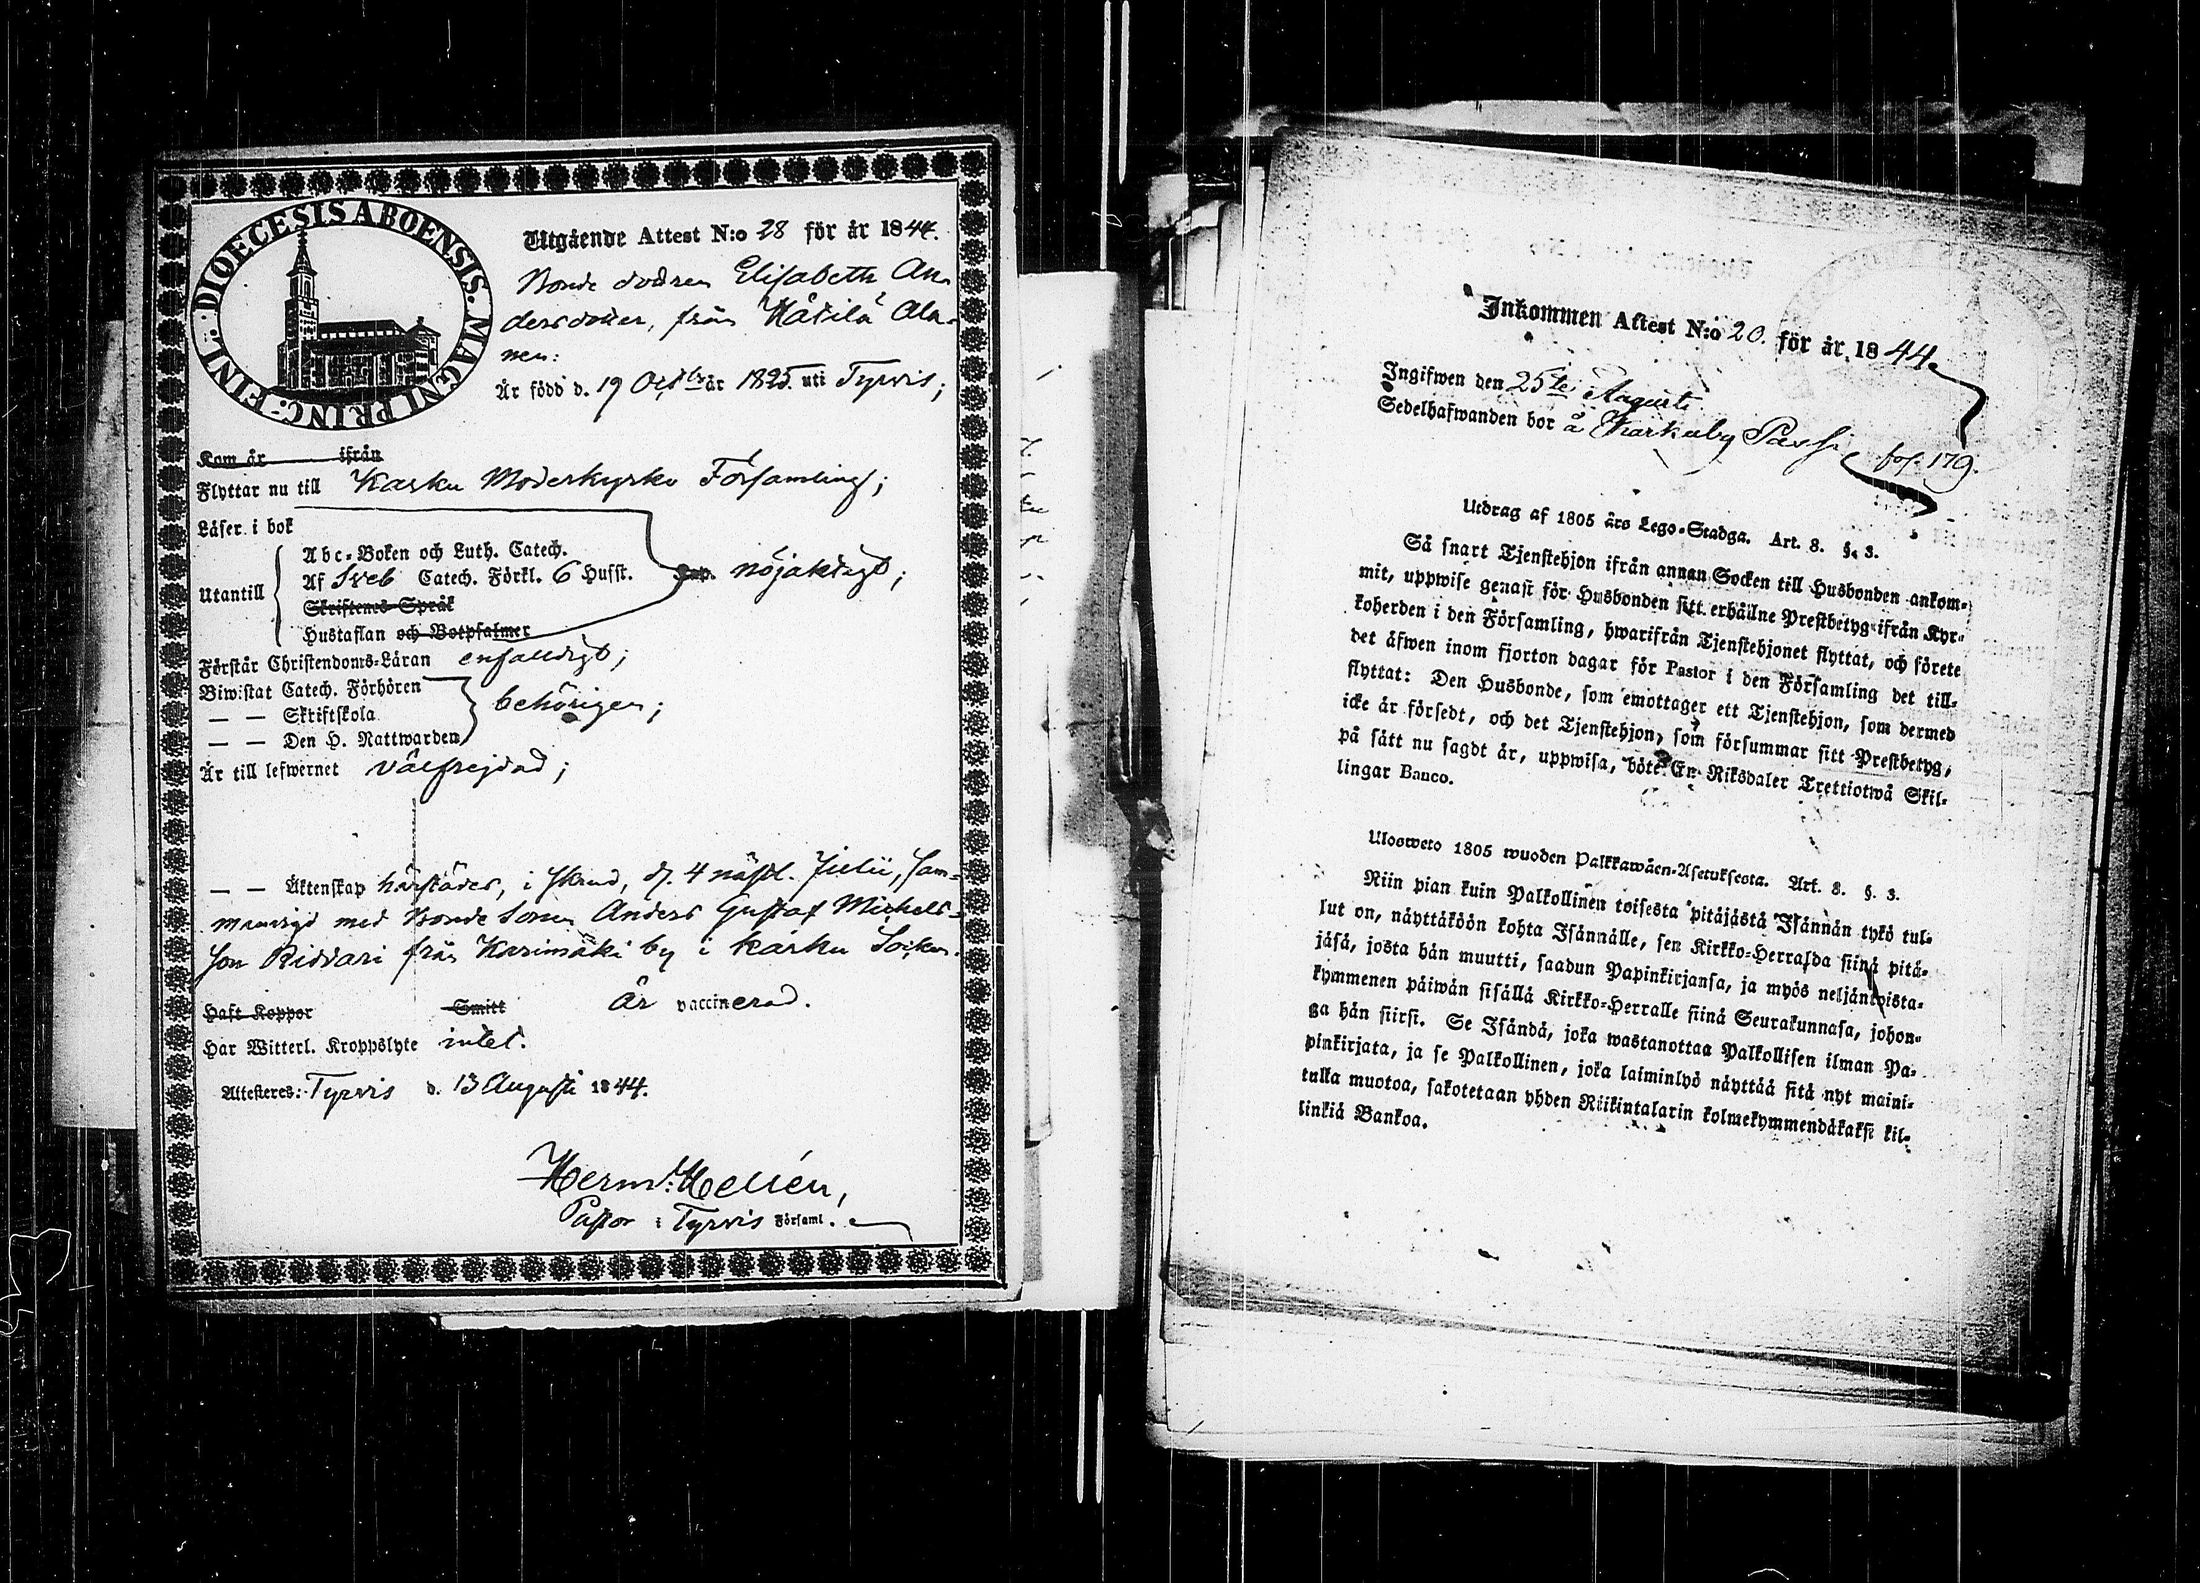 DIOECESIS ABOENSIS. MAGNI PRINC: FINL:
Utgående Attest N:o 28 för år 1844.
Bonde dottren Elisabeth An-
dersdotter, från Kätilä Ala-
nen:
Är född d. 19 Octbr år 1825. uti Tyrvis;
Kom år ifrån
Flyttar nu till Karku Moderkyrko Församling;
Läser i bok
Abc-Boken och Luth. Catech.
Utantill Af Sveb Catech. Förkl. 6 Husst. nöjaktigt;
Skriftenes Språk
Hustaflan och Botpsalmer
Förstår Christendoms-Läran enfalldigt;
Biwistat Catech. Förhören
— — Skriftskola behörigen;
— — Den H. Nattwarden
Är till lefwernet välfrejdad;
— — Äktenskap härstädes, i Skrud, d. 4 näst. Julii, sam-
manvigd med Bonde Sonen Anders Gustaf Michels-
son Riddari från Karimäki by i Karku Socken.
Haft Koppor Smitt Är vaccinerad.
Har Witterl. Kroppslyte intet.
Attesteres: Tyrvis d. 13 Augusti 1844.
Herm: Hellén,
Pastor i Tyrvis Församl.
Inkommen Attest N:o 20. för år 1844.
Ingifwen den 25te Augusti
Sedelhafwanden bor å Karkuby Passi fol. 179.
Utdrag af 1805 års Lego-Stadga. Art. 8. §. 3.
Så snart Tjenstehjon ifrån annan Socken till Husbonden ankom-
mit, uppwise genast för Husbonden sitt erhållne Prestbetyg ifrån Kyr-
koherden i den Församling, hwarifrån Tjenstehjonet flyttat, och förete
det äfwen inom fjorton dagar för Pastor i den Församling det till-
flyttat: Den Husbonde, som emottager ett Tjenstehjon, som dermed
icke är försedt, och det Tjenstehjon, som försummar sitt Prestbetyg,
på sätt nu sagdt är, uppwisa, böte En Riksdaler Trettiotwå Skil-
lingar Banco.
Ulosweto 1805 wuoden Palkkawäen-Asetuksesta. Art. 8. §. 3.
Niin pian kuin Palkollinen toisesta pitäjästä Isännän tykö tul-
lut on, näyttäköön kohta Isännälle, sen Kirkko-Herralda siinä pitä-
jäsä, josta hän muutti, saadun Papinkirjansa, ja myös neljäntoista-
kymmenen päiwän sisällä Kirkko-Herralle siinä Seurakunnasa, johon-
ga hän siirsi. Se Isändä, joka wastanottaa Palkollisen ilman Pa-
pinkirjata, ja se Palkollinen, joka laiminlyö näyttää sitä nyt maini-
tulla muotoa, sakotetaan yhden Riikintalarin kolmekymmendäkaksi kil-
linkiä Bankoa.